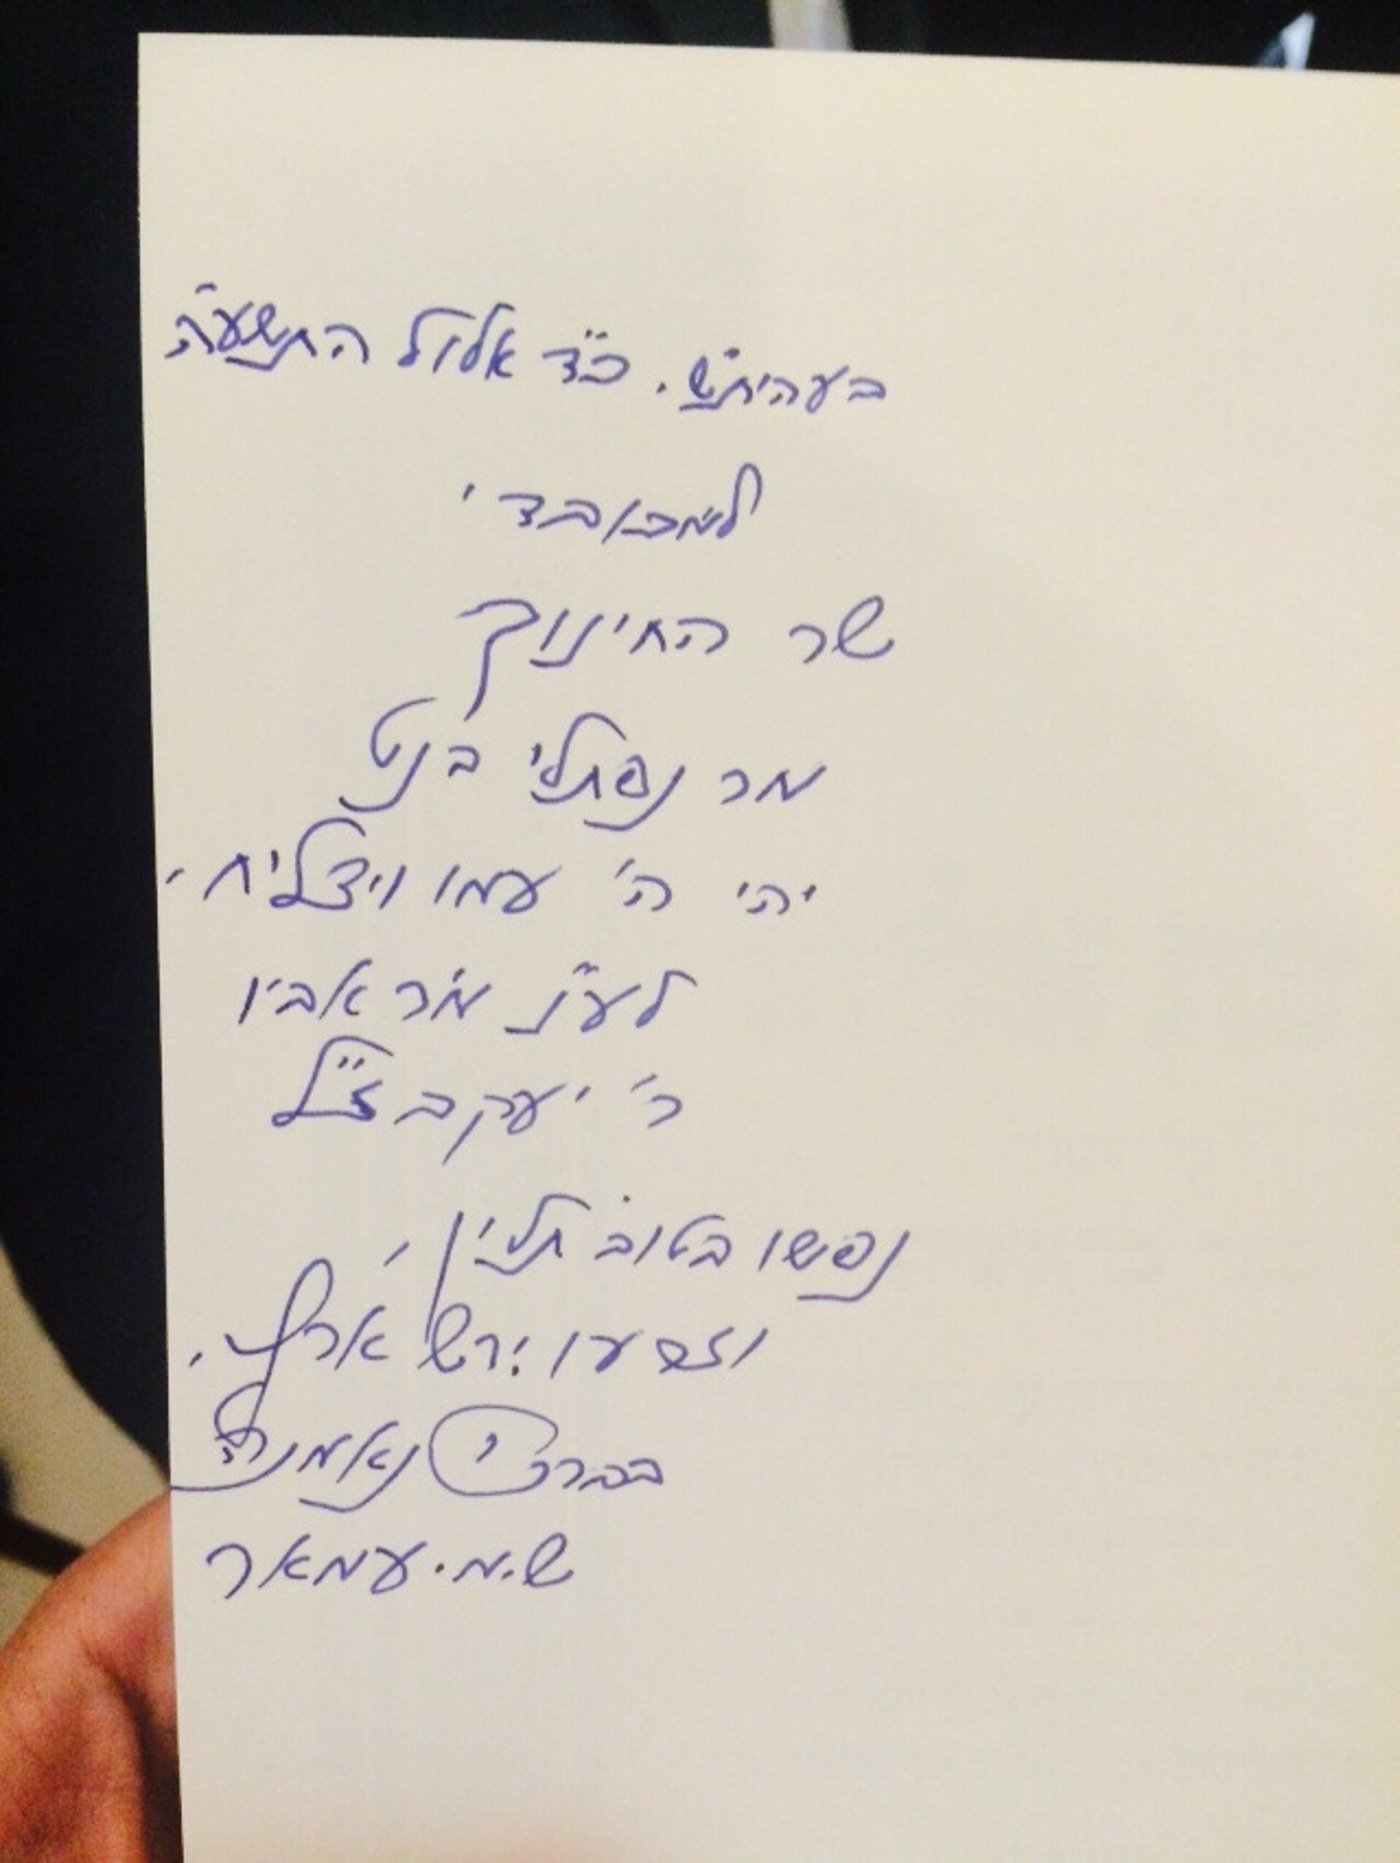 בעהית"ש. כ"ד אלול התשע"ה
למכובדי
שר החינוך
מר נפתלי בנט
יהי ה' עמו ויצליח.
לע"נ מר אביו
ר' יעקב ז"ל
נפשו בטוב תלין,
וזרעו יירש ארץ.
בברכה נאמנה
ש.מ. עמאר